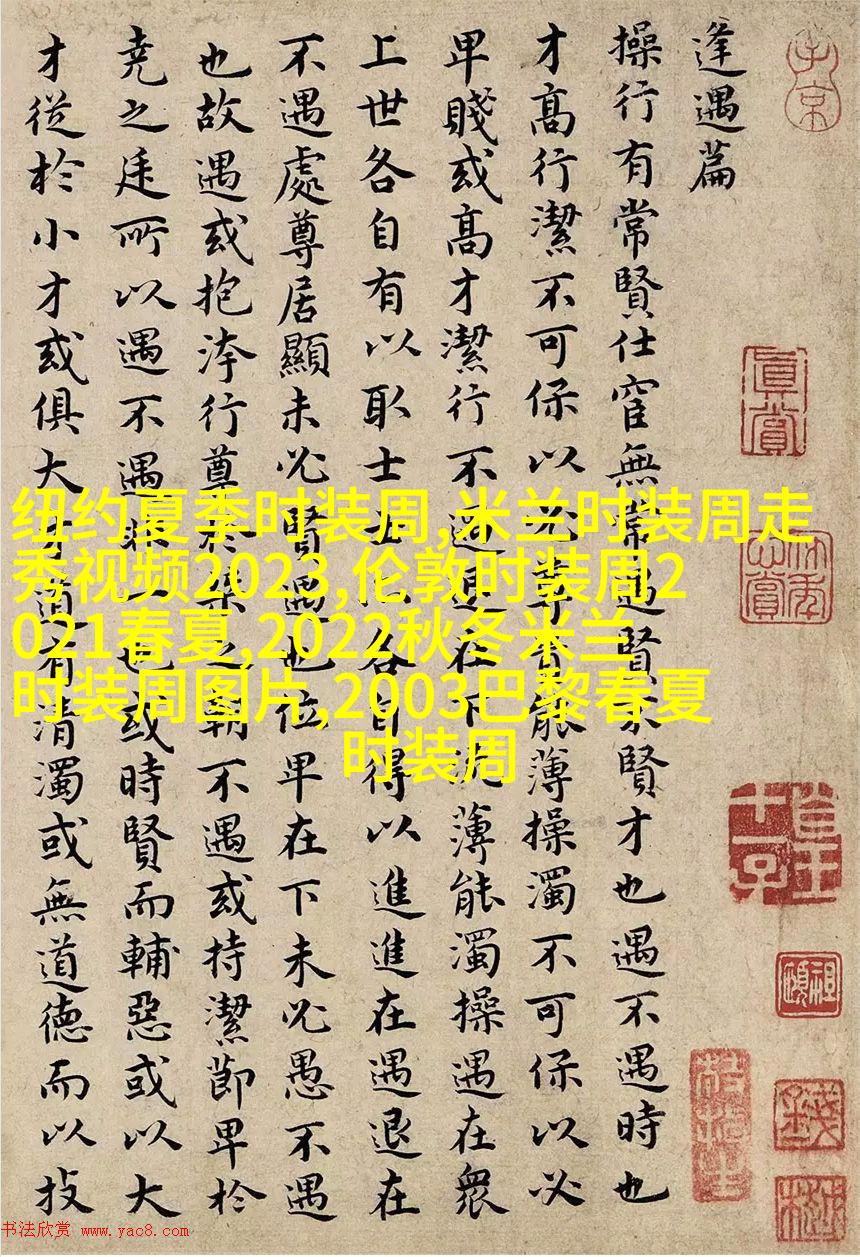 逢遇篇
操行有常賢仕宦無常遇賢不賢才也遇不遇時也
才高行潔不可保以必尊貴能薄操濁不可保以必
卑賤或高才潔行不遇退在下流薄能濁操遇在衆
上世各自有以取士士亦各自得以進進在遇退在
不遇處尊居顯未必賢遇也位卑在下未必愚不遇
也故遇或抱洿行尊於桀之朝不遇或持潔節卑於
堯之廷所以遇不遇非一也或時賢而輔惡或以大
才從於小才或俱大才道有清濁或無道德而以技
子京
真賞
纽约夏季时装周,米兰时装周走
秀视频2023,伦敦时装周2
021春夏,2022秋冬米兰
时装周图片,2003巴黎春夏
时装周
书法欣赏 www.yac8.com